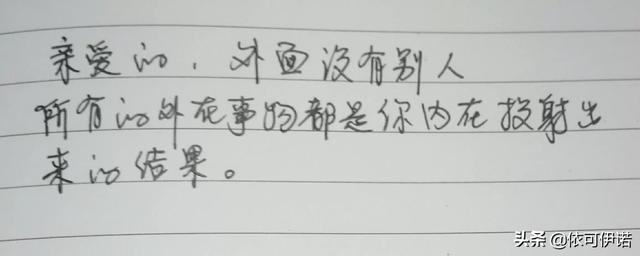 亲爱的，外面没有别人
所有的外在事物都是你内在投射出
来的结果。
头条 @依可伊诺